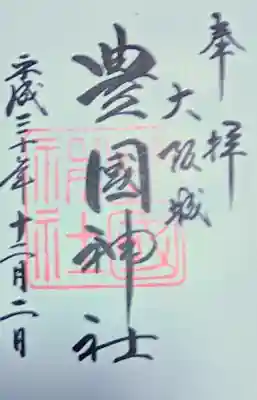 奉拝
大阪城
豊國神社
平成三十年十二月二日